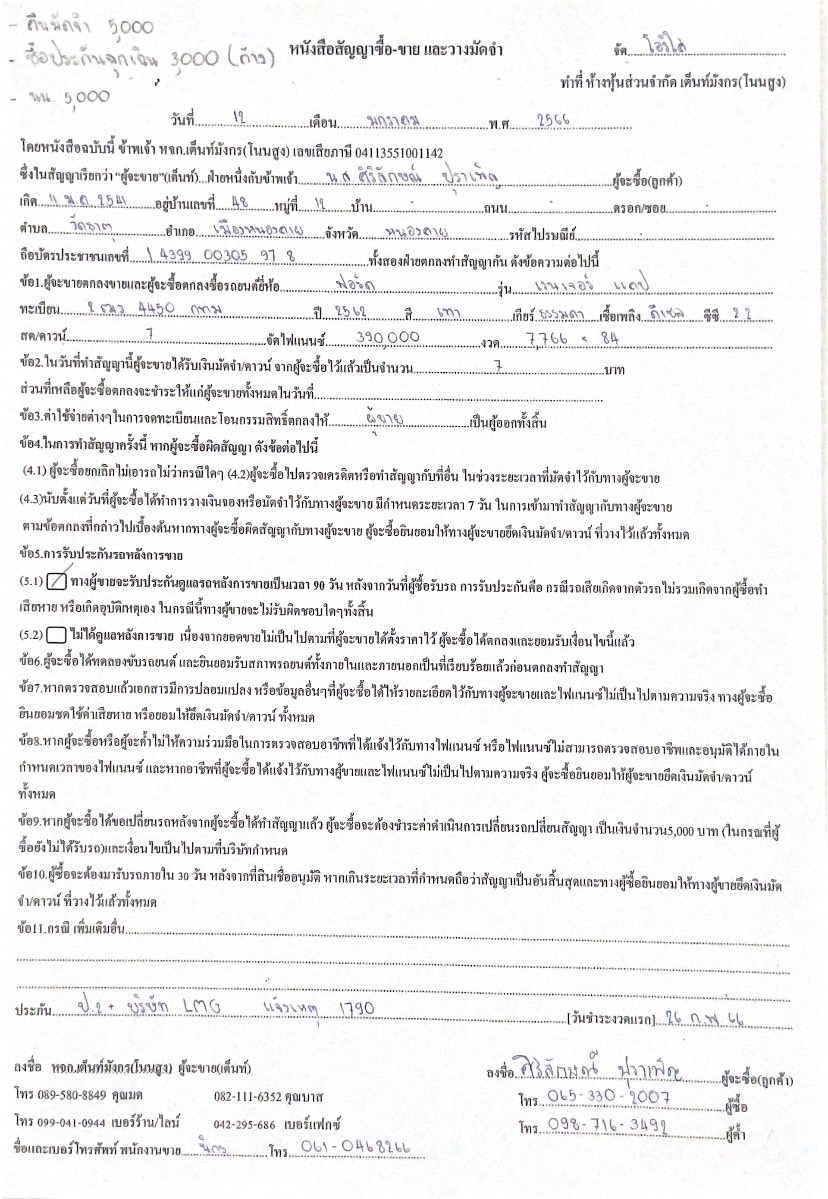 - คืนมัดจำ 5,000
- ซื้อประกันฉุกเฉิน 3,000 (ค้าง)
- นน. 5,000
หนังสือสัญญาซื้อ-ขาย และวางมัดจำ
จัด โอริโก่
ทำที่ ห้างหุ้นส่วนจำกัด เต็นท์มังกร(โนนสูง)
วันที่ 12 เดือน มกราคม พ.ศ 2566
โดยหนังสือฉบับนี้ ข้าพเจ้า หจก.เต็นท์มังกร(โนนสูง) เลขเสียภาษี 04113551001142
ซึ่งในสัญญาเรียกว่า "ผู้จะขาย"(เต็นท์)...ฝ่ายหนึ่งกับข้าพเจ้า น.ส ศิริลักษณ์ ปุราเพ็ญ ผู้จะซื้อ(ลูกค้า)
เกิด 11 ม.ค. 2541 อยู่บ้านเลขที่ 48 หมู่ที่ 12 บ้าน ถนน ตรอก/ซอย
ตำบล วัดธาตุ อำเภอ เมืองหนองคาย จังหวัด หนองคาย รหัสไปรษณีย์
ถือบัตรประชาชนเลขที่ 1 4399 00305 97 8 ทั้งสองฝ่ายตกลงทำสัญญากัน ดังข้อความต่อไปนี้
ข้อ1.ผู้จะขายตกลงขายและผู้จะซื้อตกลงซื้อรถยนต์ยี่ห้อ ฟอร์ด รุ่น เรนเจอร์ แคป
ทะเบียน 2ฒว 4450 กทม ปี 2562 สี เทา เกียร์ ธรรมดา เชื้อเพลิง ดีเซล ซีซี 2.2
สด/ดาวน์ 7 จัดไฟแนนซ์ 390,000 งวด 7,766 × 84
ข้อ2.ในวันที่ทำสัญญานี้ผู้จะขายได้รับเงินมัดจำ/ดาวน์ จากผู้จะซื้อไว้แล้วเป็นจำนวน 7 บาท
ส่วนที่เหลือผู้จะซื้อตกลงจะชำระให้แก่ผู้จะขายทั้งหมดในวันที่
ข้อ3.ค่าใช้จ่ายต่างๆในการจดทะเบียนและโอนกรรมสิทธิ์ตกลงให้ ผู้ขาย เป็นผู้ออกทั้งสิ้น
ข้อ4.ในการทำสัญญาครั้งนี้ หากผู้จะซื้อผิดสัญญา ดังข้อต่อไปนี้
(4.1) ผู้จะซื้อยกเลิกไม่เอารถไม่ว่ากรณีใดๆ (4.2)ผู้จะซื้อไปตรวจเครดิตหรือทำสัญญากับที่อื่น ในช่วงระยะเวลาที่มัดจำไว้กับทางผู้จะขาย
(4.3)นับตั้งแต่วันที่ผู้จะซื้อได้ทำการวางเงินจองหรือมัดจำไว้กับทางผู้จะขาย มีกำหนดระยะเวลา 7 วัน ในการเข้ามาทำสัญญากับทางผู้จะขาย
ตามข้อตกลงที่กล่าวไปเบื้องต้นหากทางผู้จะซื้อผิดสัญญากับทางผู้จะขาย ผู้จะซื้อยินยอมให้ทางผู้จะขายยึดเงินมัดจำ/ดาวน์ ที่วางไว้แล้วทั้งหมด
ข้อ5.การรับประกันรถหลังการขาย
(5.1) ทางผู้ขายจะรับประกันดูแลรถหลังการขายเป็นเวลา 90 วัน หลังจากวันที่ผู้ซื้อรับรถ การรับประกันคือ กรณีรถเสียเกิดจากตัวรถไม่รวมเกิดจากผู้ซื้อทำ
เสียหาย หรือเกิดอุบัติเหตุเอง ในกรณีนี้ทางผู้ขายจะไม่รับผิดชอบใดๆทั้งสิ้น
(5.2) ไม่ได้ดูแลหลังการขาย เนื่องจากยอดขายไม่เป็นไปตามที่ผู้จะขายได้ตั้งราคาไว้ ผู้จะซื้อได้ตกลงและยอมรับเงื่อนไขนี้แล้ว
ข้อ6.ผู้จะซื้อได้ทดลองขับรถยนต์ และยินยอมรับสภาพรถยนต์ทั้งภายในและภายนอกเป็นที่เรียบร้อยแล้วก่อนตกลงทำสัญญา
ข้อ7.หากตรวจสอบแล้วเอกสารมีการปลอมแปลง หรือข้อมูลอื่นๆที่ผู้จะซื้อได้ให้รายละเอียดไว้กับทางผู้จะขายและไฟแนนซ์ไม่เป็นไปตามความจริง ทางผู้จะซื้อ
ยินยอมชดใช้ค่าเสียหาย หรือยอมให้ยึดเงินมัดจำ/ดาวน์ ทั้งหมด
ข้อ8.หากผู้จะซื้อหรือผู้จะค้ำไม่ให้ความร่วมมือในการตรวจสอบอาชีพที่ได้แจ้งไว้กับทางไฟแนนซ์ หรือไฟแนนซ์ไม่สามารถตรวจสอบอาชีพและอนุมัติได้ภายใน
กำหนดเวลาของไฟแนนซ์ และหากอาชีพที่ผู้จะซื้อได้แจ้งไว้กับทางผู้ขายและไฟแนนซ์ไม่เป็นไปตามความจริง ผู้จะซื้อยินยอมให้ผู้จะขายยึดเงินมัดจำ/ดาวน์
ทั้งหมด
ข้อ9.หากผู้จะซื้อได้ขอเปลี่ยนรถหลังจากผู้จะซื้อได้ทำสัญญาแล้ว ผู้จะซื้อจะต้องชำระค่าดำเนินการเปลี่ยนรถเปลี่ยนสัญญา เป็นเงินจำนวน5,000 บาท (ในกรณีที่ผู้
ซื้อยังไม่ได้รับรถ)และเงื่อนไขเป็นไปตามที่บริษัทกำหนด
ข้อ10.ผู้ซื้อจะต้องมารับรถภายใน 30 วัน หลังจากที่สินเชื่ออนุมัติ หากเกินระยะเวลาที่กำหนดถือว่าสัญญาเป็นอันสิ้นสุดและทางผู้ซื้อยินยอมให้ทางผู้ขายยึดเงินมัด
จำ/ดาวน์ ที่วางไว้แล้วทั้งหมด
ข้อ11.กรณี เพิ่มเติมอื่น
ประกัน ป.2+ บริษัท LMG แจ้งเหตุ 1790 [วันชำระงวดแรก] 26 ก.พ. 66
ลงชื่อ หจก.เต็นท์มังกร(โนนสูง) ผู้จะขาย(เต็นท์)
ลงชื่อ ศิริลักษณ์ ปุราเพ็ญ ผู้จะซื้อ(ลูกค้า)
โทร 089-580-8849 คุณมด 082-111-6352 คุณบาส
โทร 065-330-2007 ผู้ซื้อ
โทร 099-041-0944 เบอร์ร้าน/ไลน์ 042-295-686 เบอร์แฟกซ์
โทร 098-716-3492 ผู้ค้ำ
ชื่อและเบอร์โทรศัพท์ พนักงานขาย โทร 061-0468266